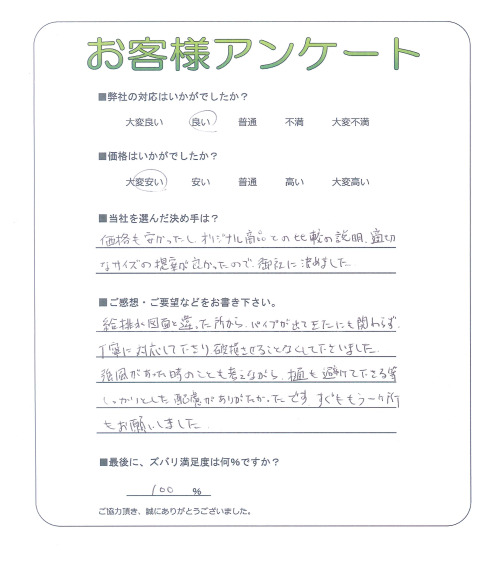 お客様アンケート
■弊社の対応はいかがでしたか？
大変良い 良い 普通 不満 大変不満
■価格はいかがでしたか？
大変安い 安い 普通 高い 大変高い
■当社を選んだ決め手は？
価格も安かったし、オリジナル商品との比較の説明、適切
なサイズの提案が良かったので、御社に決めました。
■ご感想・ご要望などをお書き下さい。
給排水図面と違った所から、パイプが出てきたにも関わらず、
丁寧に対応して下さり破損させることなくして下さいました。
強風があった時のことも考えながら、植も避けて下さる等
しっかりとした配慮がありがたかったです。すぐにもう一ヶ所
もお願いしました。
■最後に、ズバリ満足度は何%ですか？
100 %
ご協力頂き、誠にありがとうございました。